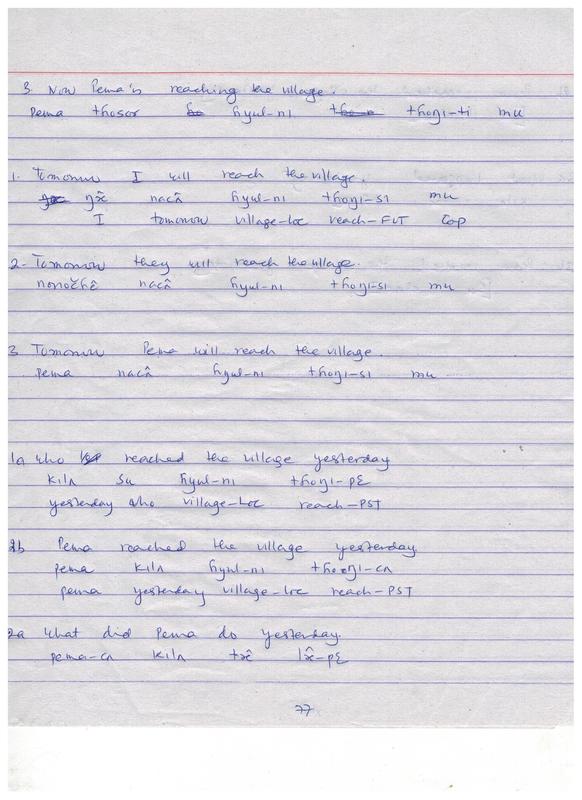 3. Now Pema is reaching the village.
Pema thosor ɦyul-nı thoŋı-ti mu
1. Tomorrow I will reach the village.
ŋæ̂ nacâ ɦyul-nı thoŋı-sı mu
I tomorrow village-Loc reach-FUT Cop
2- Tomorrow they will reach the village.
nonočhê nacâ ɦyul-nı thoŋı-sı mu
3. Tomorrow Pema will reach the village.
pema nacâ ɦyul-nı thoŋı-sı mu
1a Who reached the village yesterday
kilʌ su ɦyul-nı thoŋı-pɛ
yesterday who village-Loc reach-PST
1b Pema reached the village yesterday
pema kilʌ ɦyul-nı thoŋı-cʌ
pema yesterday village-Loc reach-PST
2a What did Pema do yesterday.
pema-cʌ kilʌ tæ̂ læ̂-pɛ
77